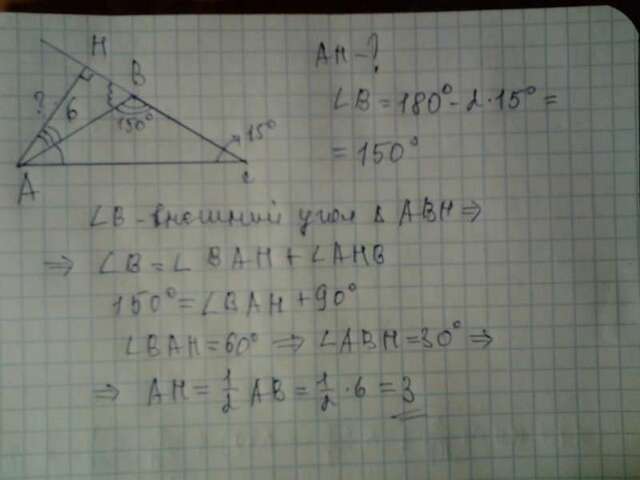 H
B
? 6
150°
15°
A
C
AH - ?
∠B = 180° - 2·15° =
= 150°
∠B - внешний угол Δ ABH ⇒
⇒ ∠B = ∠ BAH + ∠AHB
150° = ∠BAH + 90°
∠BAH = 60° ⇒ ∠ABH = 30° ⇒
⇒ AH = 1/2 AB = 1/2 · 6 = 3